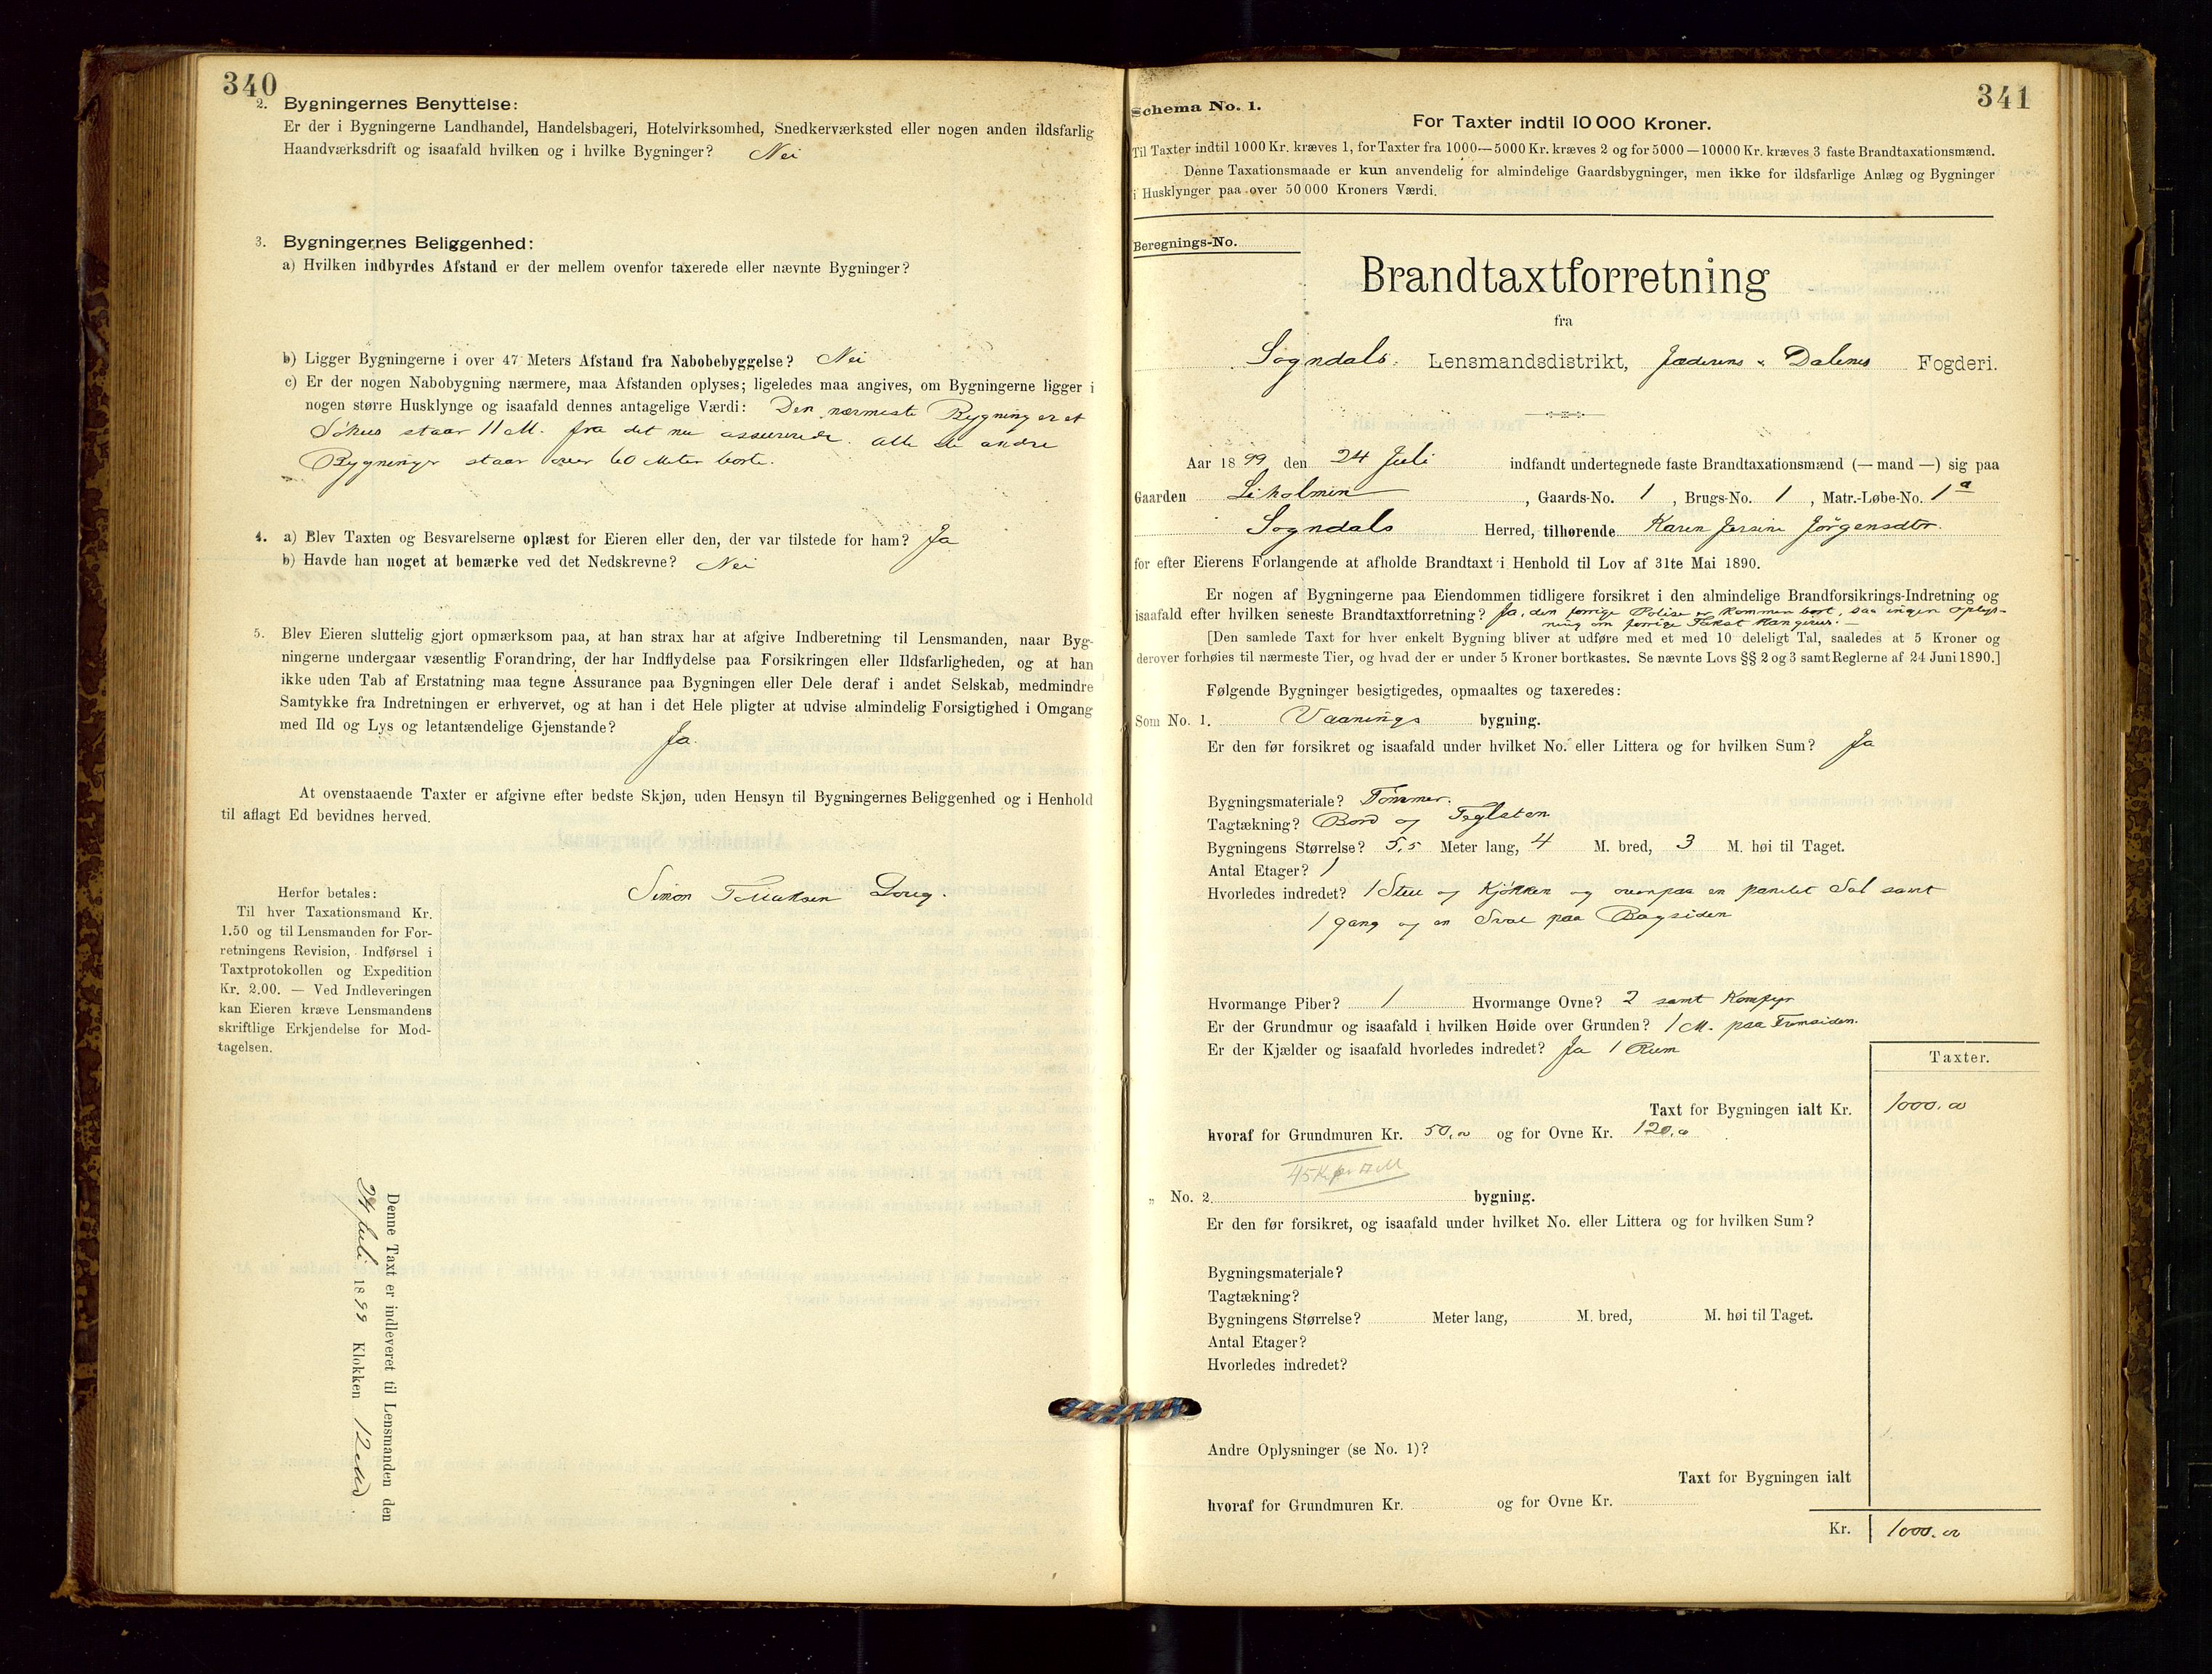 340
2. Bygningernes Benyttelse:
Er der i Bygningerne Landhandel, Handelsbageri, Hotelvirksomhed, Snedkerværksted eller nogen anden ildsfarlig
Haandværksdrift og isaafald hvilken og i hvilke Bygninger? Nei
3. Bygningernes Beliggenhed:
a) Hvilken indbyrdes Afstand er der mellem ovenfor taxerede eller nævnte Bygninger?
b) Ligger Bygningerne i over 47 Meters Afstand fra Nabobebyggelse? Nei
c) Er der nogen Nabobygning nærmere, maa Afstanden oplyses; ligeledes maa angives, om Bygningerne ligger i
nogen større Husklynge og isaafald dennes antagelige Værdi: Den nærmeste Bygning er et
Söhus staar 11 M. fra det nu assurerede. Alle de andre
Bygninger staar over 60 Meter borte.
4. a) Blev Taxten og Besvarelserne oplæst for Eieren eller den, der var tilstede for ham? Ja
b) Havde han noget at bemærke ved det Nedskrevne? Nei
5. Blev Eieren sluttelig gjort opmærksom paa, at han strax har at afgive Indberetning til Lensmanden, naar Byg-
ningerne undergaar væsentlig Forandring, der har Indflydelse paa Forsikringen eller Ildsfarligheden, og at han
ikke uden Tab af Erstatning maa tegne Assurance paa Bygningen eller Dele deraf i andet Selskab, medmindre
Samtykke fra Indretningen er erhvervet, og at han i det Hele pligter at udvise almindelig Forsigtighed i Omgang
med Ild og Lys og letantændelige Gjenstande? Ja
At ovenstaaende Taxter er afgivne efter bedste Skjøn, uden Hensyn til Bygningernes Beliggenhed og i Henhold
til aflagt Ed bevidnes herved.
Simon
Herfor betales:
Til hver Taxationsmand Kr.
1.50 og til Lensmanden for For-
retningens Revision, Indførsel i
Taxtprotokollen og Expedition
Kr. 2.00. — Ved Indleveringen
kan Eieren kræve Lensmandens
skriftlige Erkjendelse for Mod-
tagelsen.
Denne Taxt er indleveret til Lensmanden den
24 Juli 1899 Klokken 12
341
Schema No. 1.
For Taxter indtil 10 000 Kroner.
Til Taxter indtil 1000 Kr. kræves 1, for Taxter fra 1000—5000 Kr. kræves 2 og for 5000—10000 Kr. kræves 3 faste Brandtaxationsmænd.
Denne Taxationsmaade er kun anvendelig for almindelige Gaardsbygninger, men ikke for ildsfarlige Anlæg og Bygninger
i Husklynger paa over 50 000 Kroners Værdi.
Beregnings-No.
Brandtaxtforretning
fra
Sogndals Lensmandsdistrikt, Jæderens & Dalenes Fogderi.
Aar 1899 den 24 Juli indfandt undertegnede faste Brandtaxationsmænd (—mand—) sig paa
Gaarden Liholmen, Gaards-No. 1, Brugs-No. 1, Matr.-Løbe-No. 1 a
Sogndals Herred, tilhørende Karen Jørgensdtr.
for efter Eierens Forlangende at afholde Brandtaxt i Henhold til Lov af 31te Mai 1890.
Er nogen af Bygningerne paa Eiendommen tidligere forsikret i den almindelige Brandforsikrings-Indretning og
isaafald efter hvilken seneste Brandtaxtforretning? Ja, den forrige Polise er kommen bort, saa ingen oplys-
ning om forrige Takst
[Den samlede Taxt for hver enkelt Bygning bliver at udføre med et med 10 deleligt Tal, saaledes at 5 Kroner og
derover forhøies til nærmeste Tier, og hvad der er under 5 Kroner bortkastes. Se nævnte Lovs §§ 2 og 3 samt Reglerne af 24 Juni 1890.]
Følgende Bygninger besigtigedes, opmaaltes og taxeredes:
Som No. 1. Vaanings bygning.
Er den før forsikret og isaafald under hvilket No. eller Littera og for hvilken Sum? Ja
Bygningsmateriale? Tømmer.
Tagtækning? Bord og Teglsten
Bygningens Størrelse? 5,5 Meter lang, 4 M. bred, 3 M. høi til Taget.
Antal Etager? 1
Hvorledes indredet? 1 Stue og Kjökken og ovenpaa en panelet Sal samt
1 gang og en Sval paa Bagsiden
Hvormange Piber? 1 Hvormange Ovne? 2 samt Komfyr
Er der Grundmur og isaafald i hvilken Høide over Grunden? 1 M. paa Fremsiden.
Er der Kjælder og isaafald hvorledes indredet? Ja 1 Rum
Taxter.
Taxt for Bygningen ialt Kr. 1000.00
hvoraf for Grundmuren Kr. 50.00 og for Ovne Kr. 120.00
45 Kr pr □ M
„ No. 2. bygning.
Er den før forsikret, og isaafald under hvilket No. eller Littera og for hvilken Sum?
Bygningsmateriale?
Tagtækning?
Bygningens Størrelse? Meter lang, M. bred, M. høi til Taget.
Antal Etager?
Hvorledes indredet?
Andre Oplysninger (se No. 1)?
Taxt for Bygningen ialt
hvoraf for Grundmuren Kr. og for Ovne Kr.
Kr. 1000.00